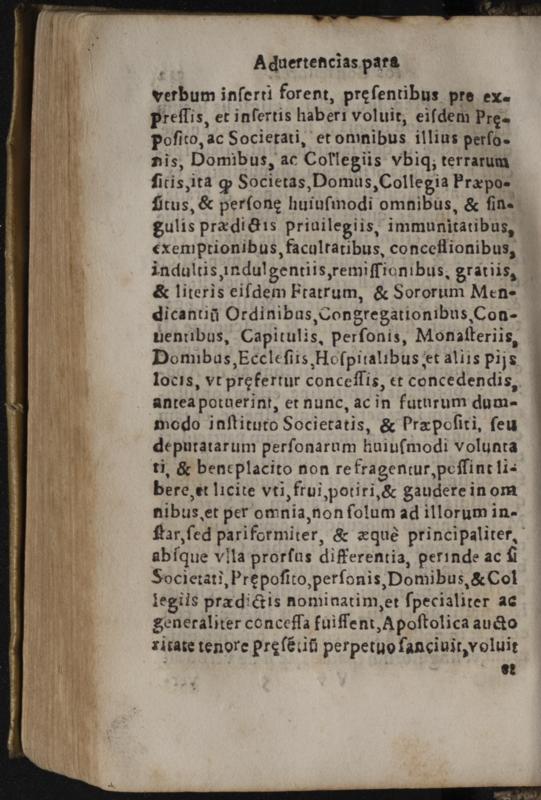 Aduertencias para
verbum inserti forent, pręsentibus pro ex-
pressis, et insertis haberi voluit, eisdem Prę-
posito, ac Societati, et omnibus illius perso-
nis, Domibus, ac Collegiis vbiq; terrarum
sitis, ita ꝙ Societas, Domus, Collegia Præpo-
situs, & personę huiusmodi omnibus, & sin-
gulis prædictis priuilegiis, immunitatibus,
exemptionibus, facultatibus, concessionibus,
indultis, indulgentiis, remissionibus, gratiis,
& literis eisdem Fratrum, & Sororum Men-
dicantiũ Ordinibus, Congregationibus, Con-
uentibus, Capitulis, personis, Monasteriis,
Domibus, Ecclesiis, Hospitalibus, et aliis pijs
locis, vt pręfertur concessis, et concedendis,
antea potuerint, et nunc, ac in futurum dum-
modo instituto Societatis, & Præpositi, seu
deputatarum personarum huiusmodi volunta
ti, & beneplacito non refragentur, possint li-
bere, et licite vti, frui, potiri, & gaudere in om
nibus, et per omnia, non solum ad illorum in-
star, sed pariformiter, & æquè principaliter,
absque vlla prorsus differentia, perinde ac si
Societati, Pręposito, personis, Domibus, & Col
legiis prædictis nominatim, et specialiter ac
generaliter concessa fuissent, Apostolica aucto
ritate tenore pręsẽtiũ perpetuo sanciuit, voluit
&